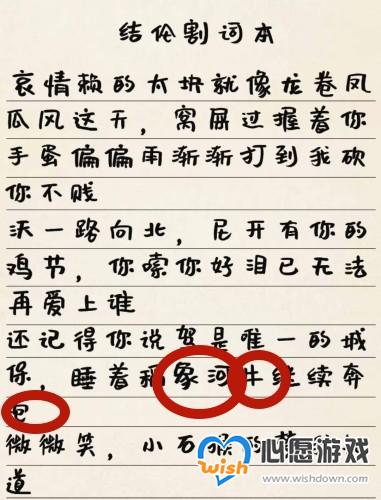 结伦割词本
哀情赖的太块就像龙卷凤
瓜风这天，窝屎过握着你
手蛋偏偏雨渐渐打到我砍
你不贱
沃一路向北，尼开有你的
鸡节，你嗦你好泪已无法
再爱上谁
还记得你说驾是唯一的城
保，睡着稻象河牛继续奔
包
微微笑，小石猴的
道
wish 心愿游戏
www.wishdown.com